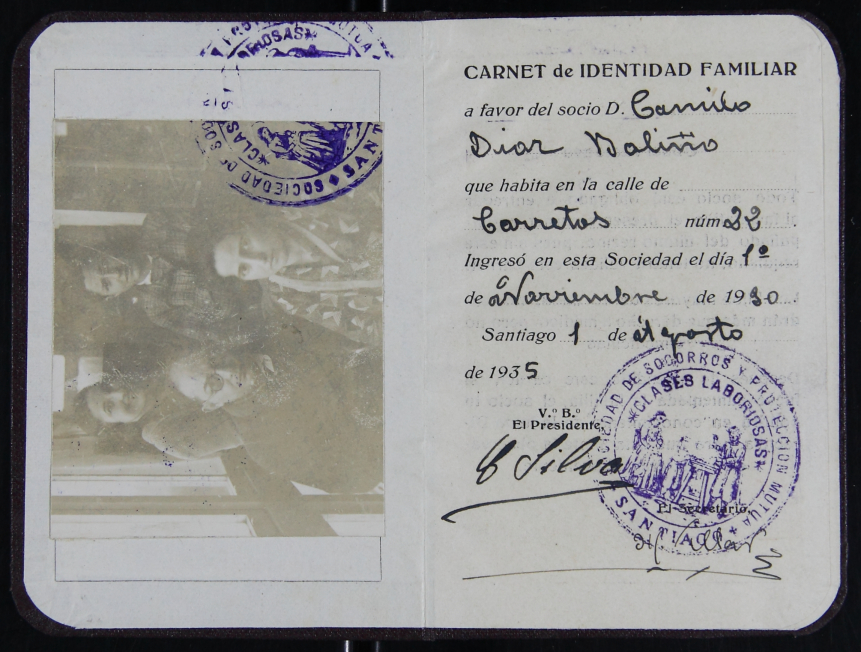 CARNET de IDENTIDAD FAMILIAR
a favor del socio D. Camilo
Diaz Baliño
que habita en la calle de
Carretas núm 22.
Ingresó en esta Sociedad el día 1º
de Noviembre de 1930.
Santiago 1 de Agosto
de 1935
V.º B.º
El Presidente,
E Silva
SOCIEDAD DE SOCORROS Y PROTECCION MUTUA
*CLASES LABORIOSAS*
SANTIAGO
El Secretario,
SOCIEDAD DE SOC
*CLAS
SANT
MUTUA
RIOSAS*